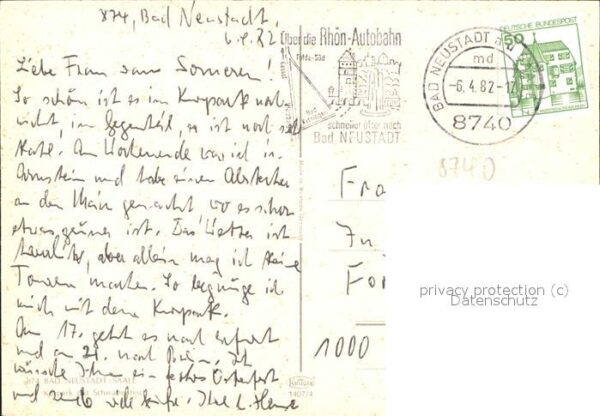 874, Bad Neustadt,
6.4.82
Liebe Frau von
So schön ist es im Kurpark noch
nicht, im Gegenteil, es ist noch sehr
kalt. Am Wochenende war ich in
Arnstein und habe einen Abstecher
an den Main gemacht wo es schon
etwas grüner ist. Das Wetter ist
aber allein mag ich keine
Touren machen. So begnüge ich
mich mit dem Kurpark.
Am 17. geht es nach Erfurt
und am 21. nach Ich
wünsche Ihnen ein Osterfest
und viele Ihre
Über die Rhön-Autobahn
Fulda-Süd
schneller öfter nach
Bad NEUSTADT
BAD NEUSTADT
md
-6.4.82-17
8740
DEUTSCHE BUNDESPOST
50
8740
Fra
In
For
1000
privacy protection (c)
Datenschutz
874 BAD NEUSTADT/SAALE
Kurpark
1407/4